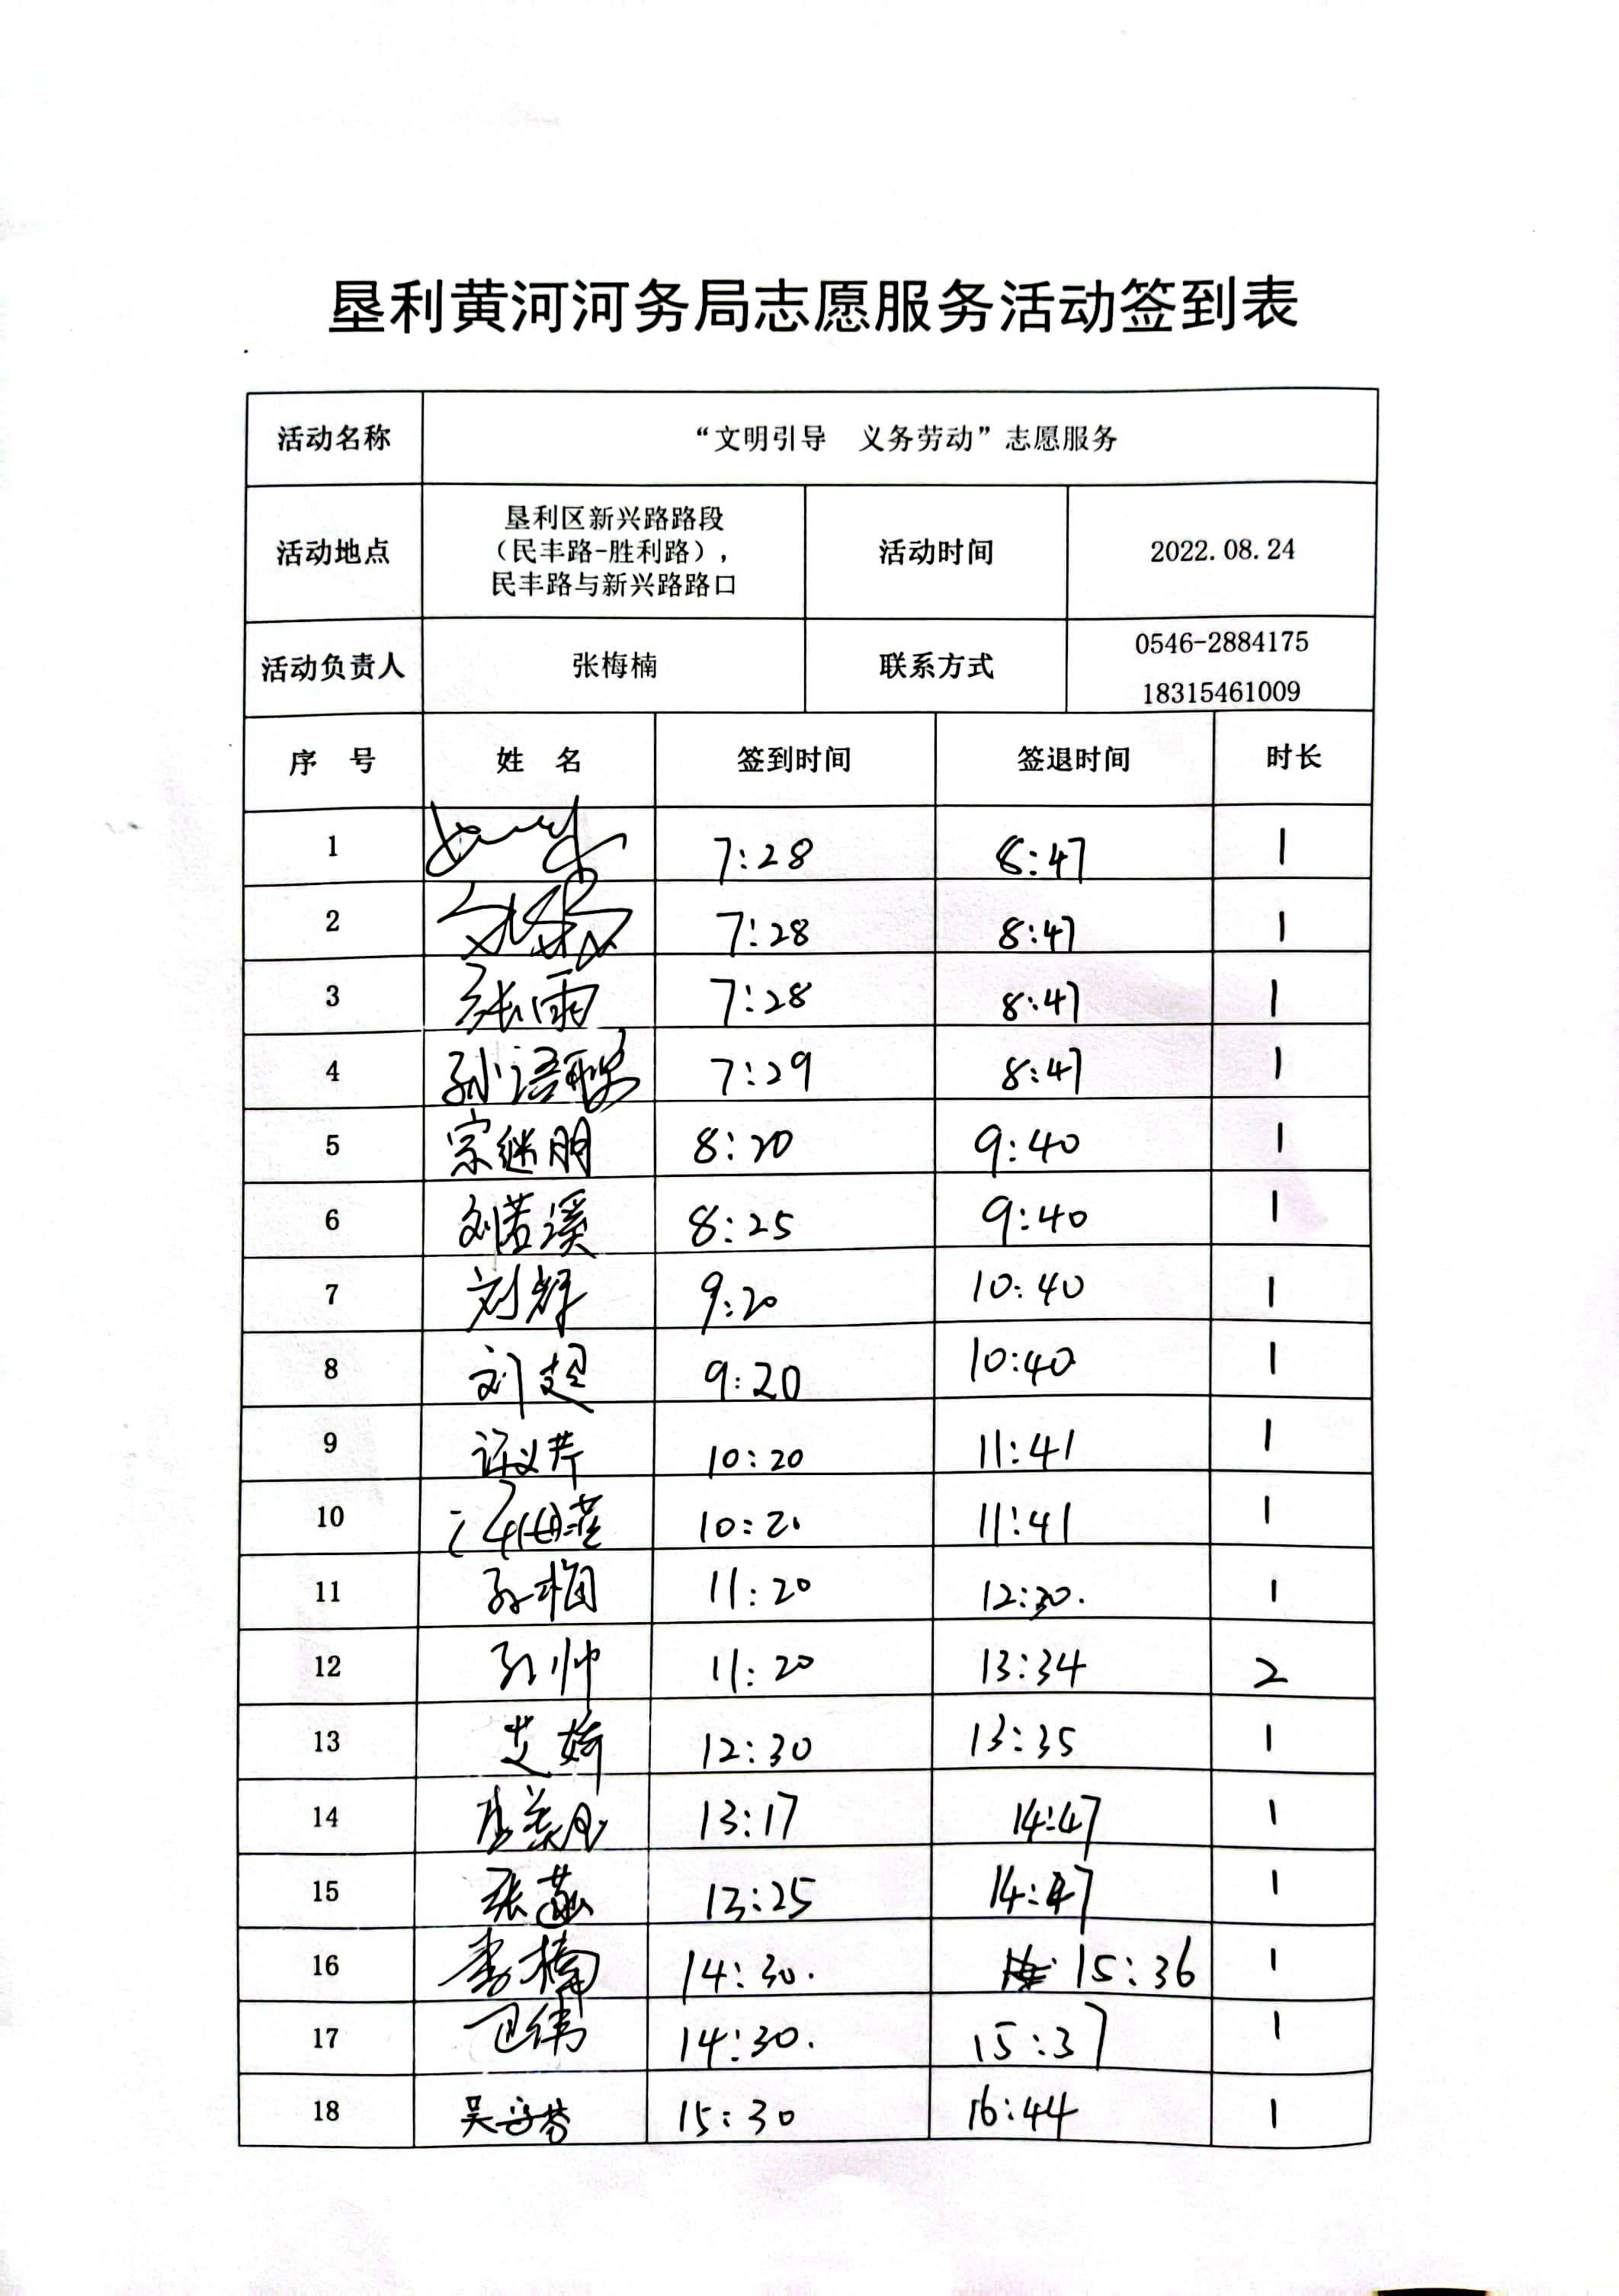 垦利黄河河务局志愿服务活动签到表
活动名称 “文明引导 义务劳动”志愿服务
活动地点 垦利区新兴路路段
（民丰路-胜利路），
民丰路与新兴路路口 活动时间 2022.08.24
活动负责人 张梅楠 联系方式 0546-2884175
18315461009
序 号 姓 名 签到时间 签退时间 时长
1 7:28 8:47 1
2 7:28 8:47 1
3 张雨 7:28 8:47 1
4 孙语 7:29 8:47 1
5 宗继朋 8:20 9:40 1
6 刘若溪 8:25 9:40 1
7 刘辉 9:20 10:40 1
8 刘超 9:20 10:40 1
9 许义芹 10:20 11:41 1
10 10:21 11:41 1
11 孙梅 11:20 12:30. 1
12 孙帅 11:20 13:34 2
13 艾婷 12:30 13:35 1
14 13:17 14:47 1
15 张 13:25 14:47 1
16 李楠 14:30. 15:36 1
17 卫伟 14:30. 15:37 1
18 吴 15:30 16:44 1